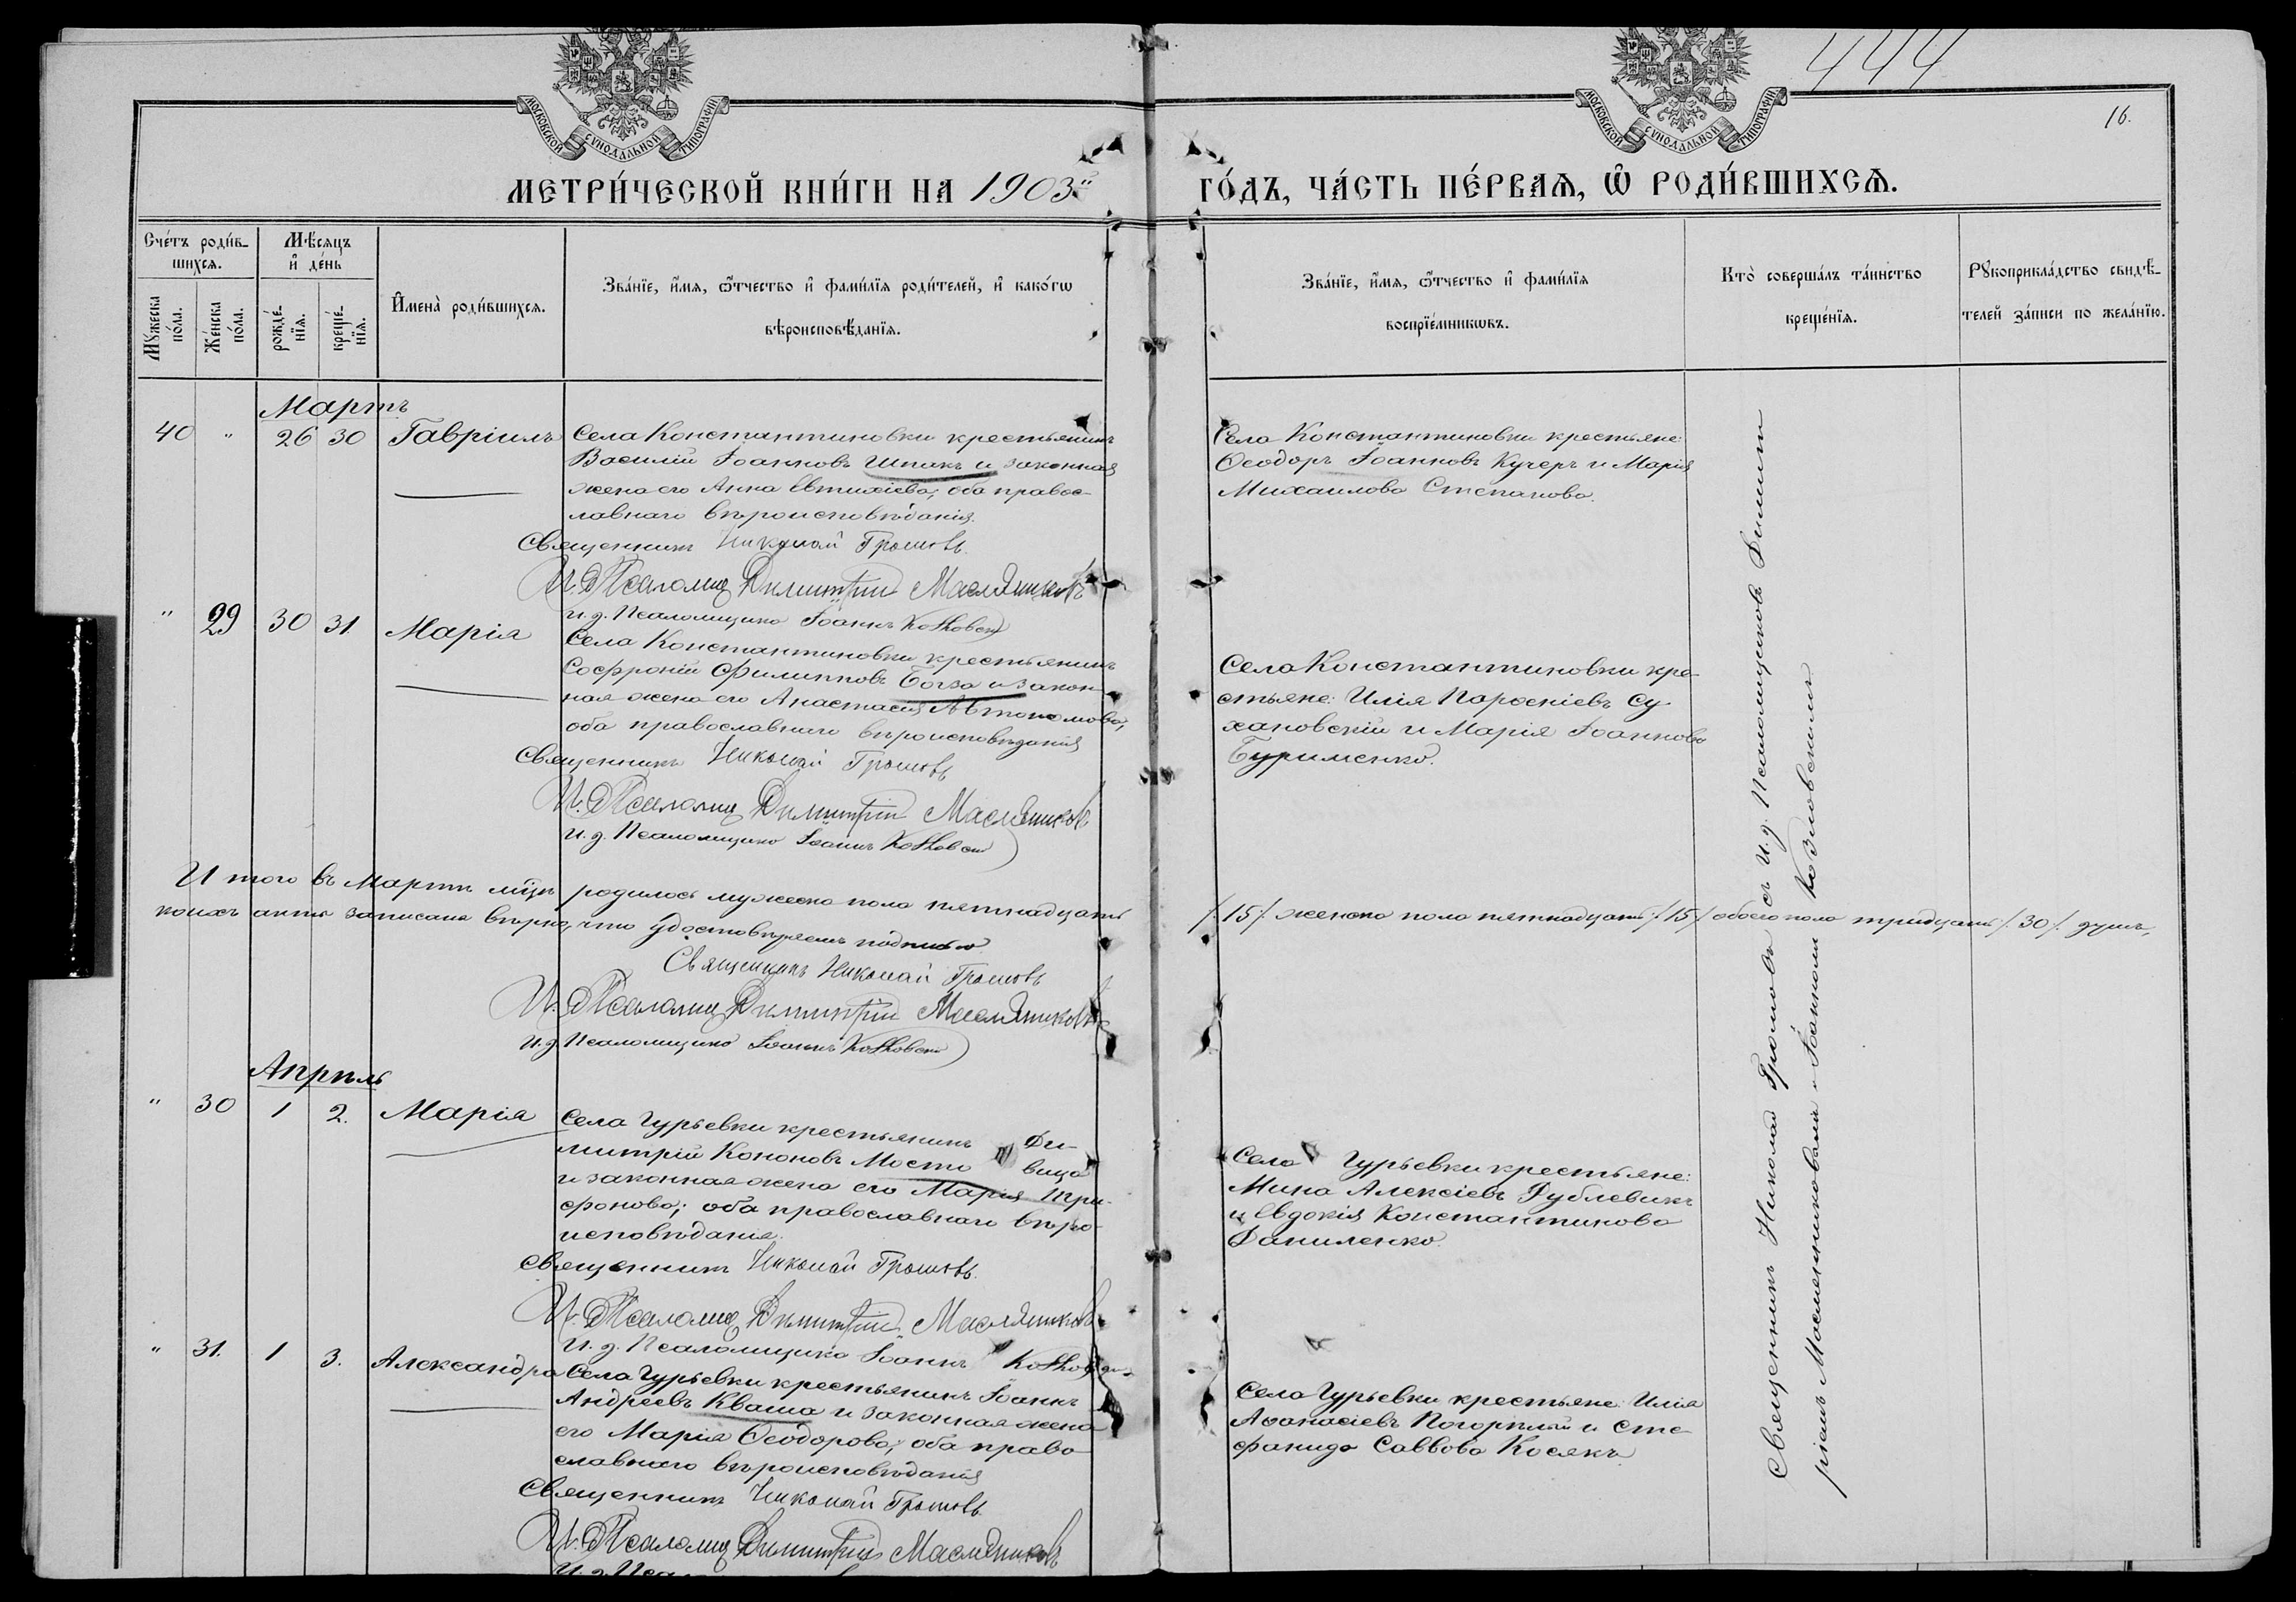 МОСКОВСКОЙ СУНОДАЛЬНОЙ ТИПОГРАФІИ
МОСКОВСКОЙ СУНОДАЛЬНОЙ ТИПОГРАФІИ
444
16.
МЕТРИ́ЧЕСКОЙ КНИ́ГИ НА 1903й
ГО́ДЪ, ЧА́СТЬ ПЕ́РВАѦ, Ѡ҆ РОДИ́ВШИХСѦ.
Сче́тъ роди́в-
шихсѧ.
Мꙋ́жеска по́ла.
Же́нска по́ла.
Мѣ́сѧцъ
и҆ де́нь
рожде́-
нїѧ.
креще́-
нїѧ.
И҆мена̀ роди́вшихсѧ.
Зва́нїе, и҆́мѧ, ѻ҆́тчество и҆ фами́лїѧ роди́телей, и҆ како́гѡ
вѣроисповѣ́данїѧ.
Зва́нїе, и҆́мѧ, ѻ҆́тчество и҆ фами́лїѧ
воспрїе́мникѡвъ.
Кто̀ соверша́лъ та́инство
креще́нїѧ.
Рꙋкоприкла́дство свидѣ́-
телей за́писи по жела́нїю.
Мартъ
40 " 26 30 Гавріилъ
Села Константиновки крестьянинъ
Василій Іоанновъ Шпакъ и законная
жена его Анна Евтихіева, оба правос-
лавнаго вѣроисповѣданія.
Священникъ Николай Громовъ.
И. д. Псаломщ Димитрій Масляниковъ
и. д. Псаломщика Іоаннъ Козловскій
Села Константиновки крестьяне:
Ѳеодоръ Іоанновъ Кучеръ и Марія
Михаилова Степанова.
" 29 30 31 Марія
Села Константиновки крестьянинъ
Софроній Филипповъ Богза и закон-
ная жена его Анастасія Автономова,
оба православнаго вѣроисповѣданія
Священникъ Николай Громовъ
И. д. Псаломщ Димитрій Масляниковъ
и. д. Псаломщика Іоаннъ Козловскій
Села Константиновки кре-
стьяне: Илія Пароеніевъ Су-
хановскій и Марія Іоаннова
Буrименко.
Итого въ Мартѣ мцѣ родилось мужеска пола пятнадцать
/.15/. женска пола пятнадцать /.15/. обоего пола тридцать /.30/. душъ,
коихъ акты записаны вѣрно, что удостовѣряемъ подписью
Священникъ Николай Громовъ
И. д. Псаломщ Димитрій Масляниковъ
и. д. Псаломщика Іоаннъ Козловскій
Апрѣль
" 30 1 2. Марія
Села Гурьевки крестьянинъ Ди-
митрій Кононовъ Мосто вица
и законная жена его Марія Три-
фонова; оба православнаго вѣро-
исповѣданія.
Священникъ Николай Громовъ.
И. д. Псаломщ Димитрій Масляниковъ
и. д. Псаломщика Іоаннъ Козловскій
Села Гурьевки крестьяне:
Мина Алексіевъ Дублевичъ
и Евдокія Константинова
Даниленко.
" 31. 1 3. Александра
Села Гурьевки крестьянинъ Іоаннъ
Андреевъ Кваша и законная жена
его Марія Ѳеодорова, оба право-
славнаго вѣроисповѣданія
Священникъ Николай Громовъ.
И. д. Псаломщ Димитрій Масляниковъ
Села Гурьевки крестьяне: Илія
Аѳанасіевъ Погорѣлый и Сте-
фанида Саввова Косякъ
Священникъ Николай Громовъ съ и. д. Псаломщиковъ Димит-
ріемъ Маслениковымъ и Іоанномъ Козловскимъ